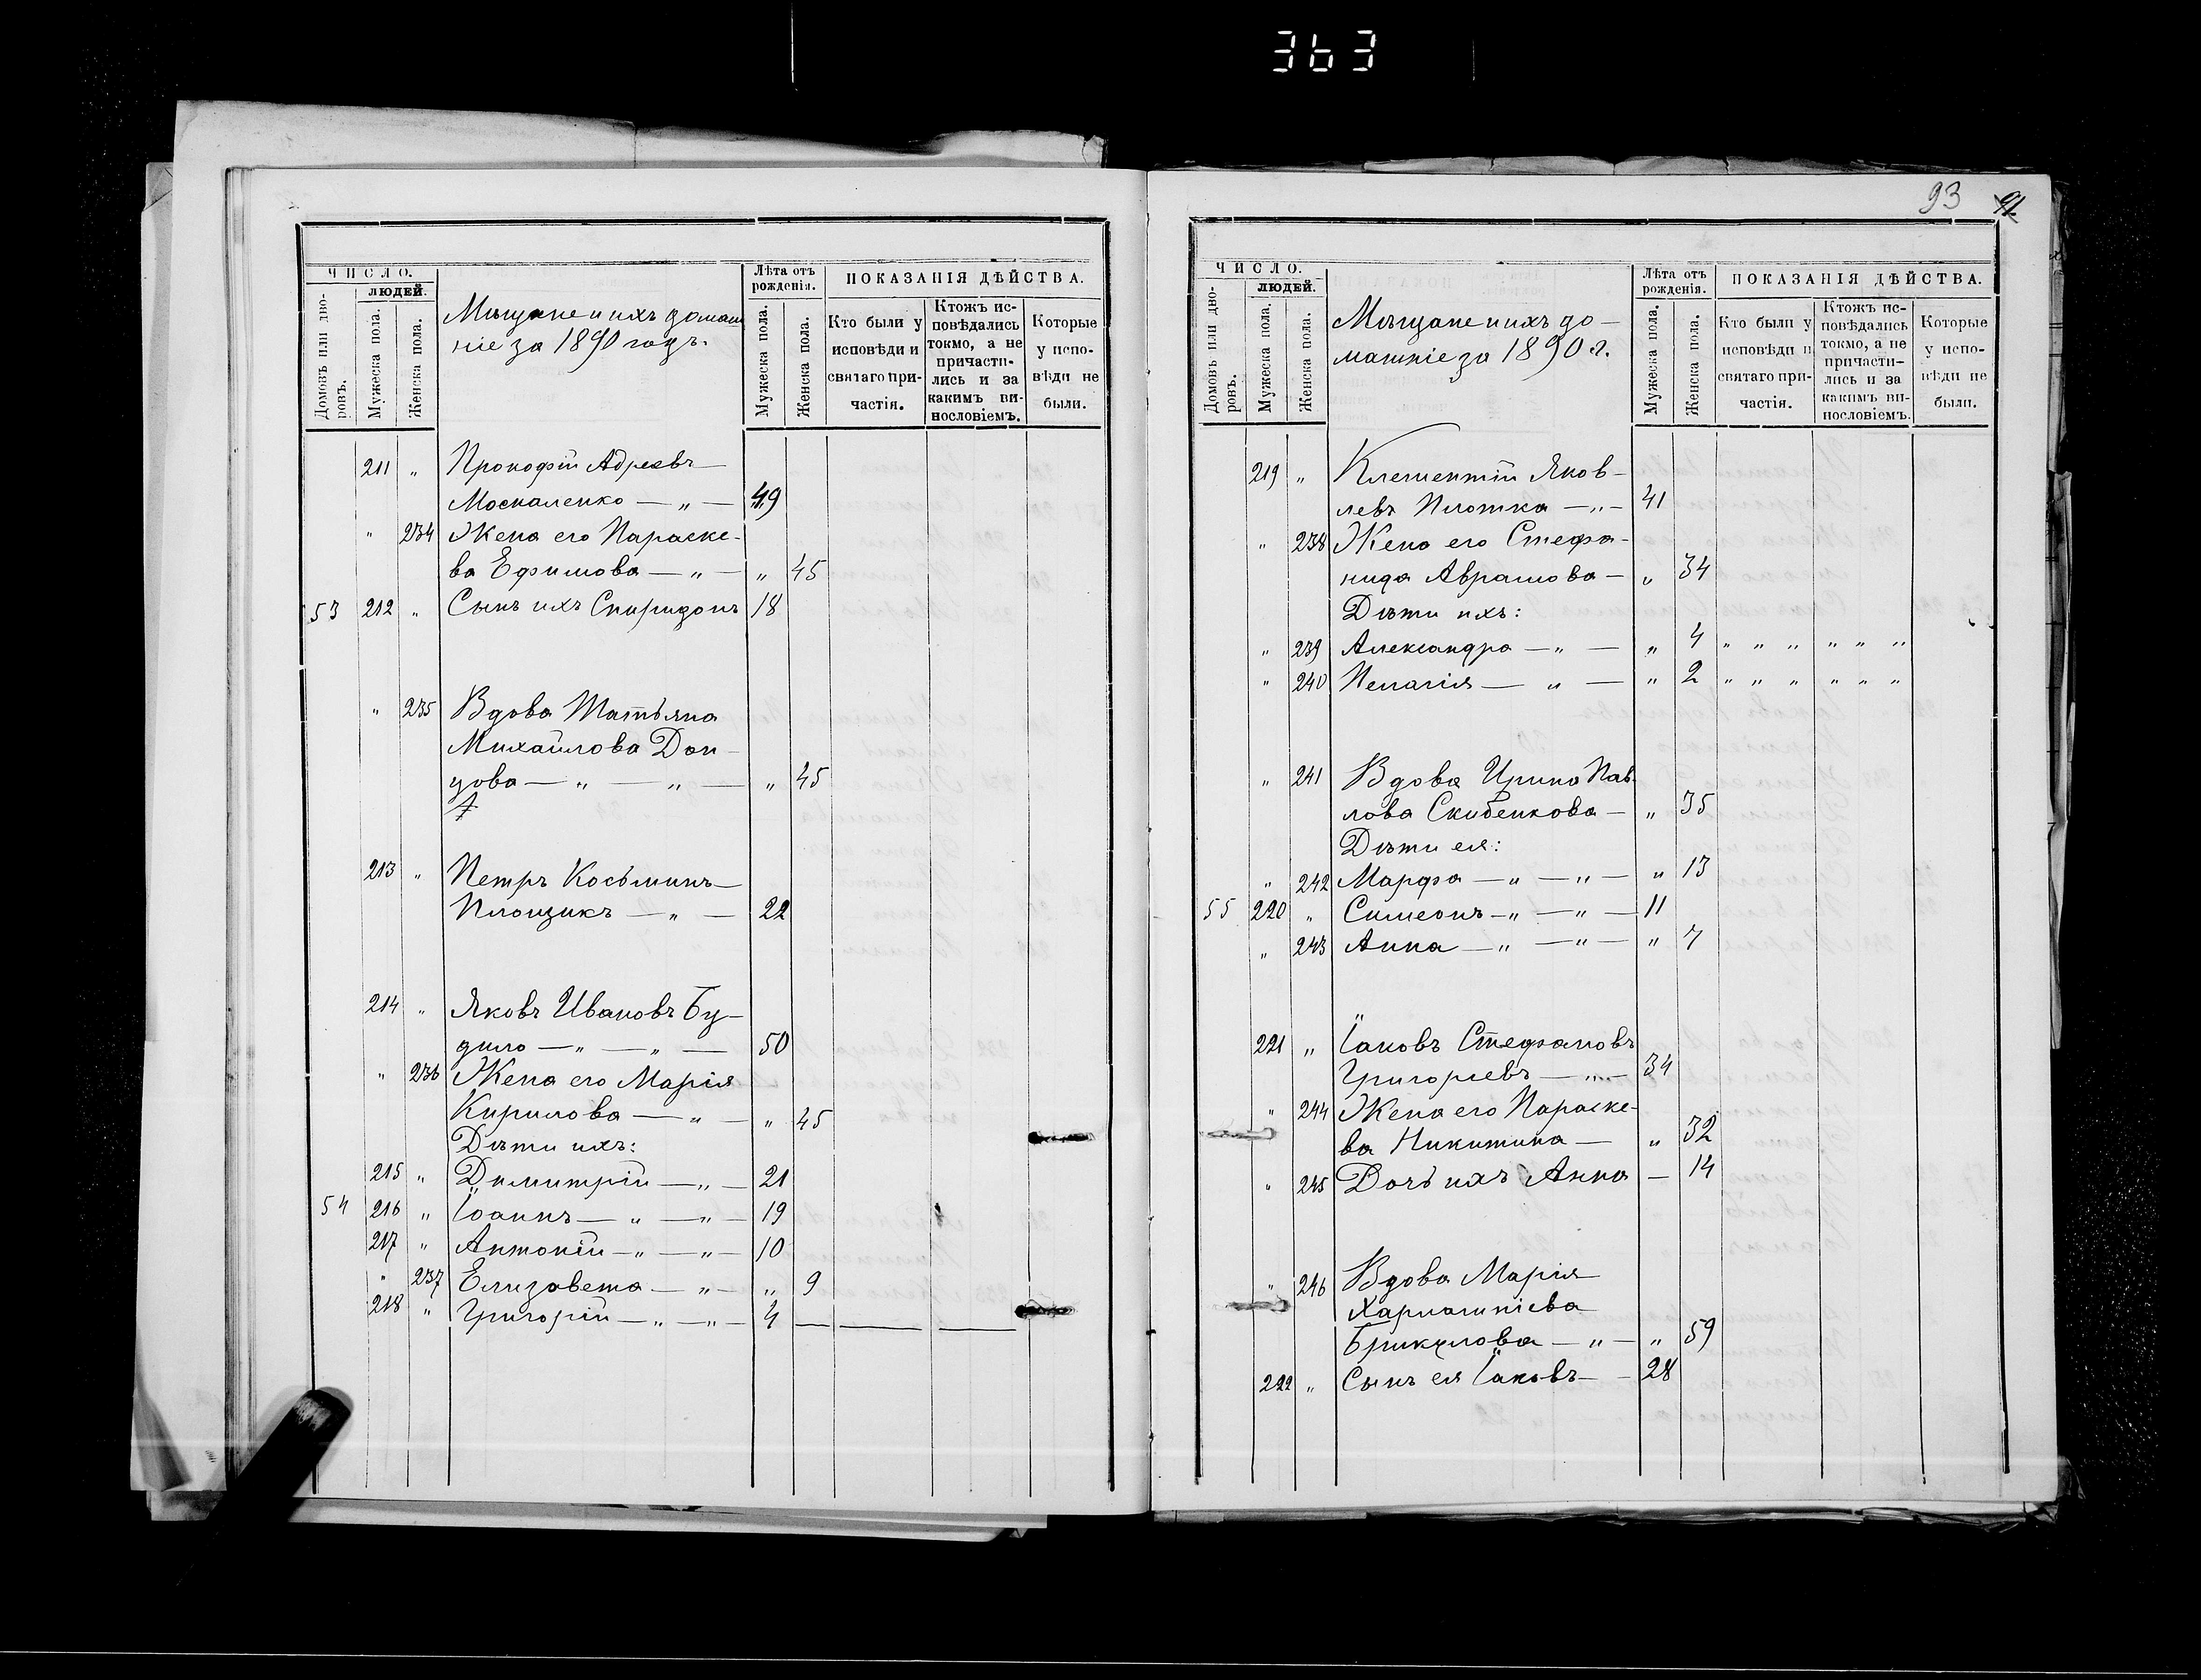 363
ЧИСЛО.
ЛЮДЕЙ.
Домовъ или дво-
ровъ.
Мужеска пола.
Женска пола.
Мѣщане и ихъ домаш
ніе за 1890 годъ.
Лѣта отъ
рожденія.
Мужеска пола.
Женска пола.
ПОКАЗАНІЯ ДѢЙСТВА.
Кто были у
исповѣди и
святаго при-
частія.
Ктожъ ис-
повѣдались
токмо, а не
причасти-
лись и за
какимъ ви-
нословіемъ.
Которые
у испо-
вѣди не
были.
211 „ Прокофій Адреевъ
Москаленко — „ — 49
„ 234 Жена его Параске-
ва Ефимова — „ — „ 45
53 212 „ Сынъ ихъ Спиридонъ 18
„ 235 Вдова Татьяна
Михайлова Дон-
цова — „ — „ — „ 45
213 „ Петръ Косьминъ —
Площикъ — „ — 22
214 „ Яковъ Ивановъ Бу-
дило — „ — „ — 50
„ 236 Жена его Марія
Кирилова — „ — „ 45
Дѣти ихъ:
215 „ Димитрій — „ — 21
54 216 „ Іоаннъ — „ — „ — 19
217 „ Антоній — „ — „ — 10
„ 237 Елизавета — „ — „ 9
218 „ Григорій — „ — „ — 4 — — —
93 91
ЧИСЛО.
ЛЮДЕЙ.
Домовъ или дво-
ровъ.
Мужеска пола.
Женска пола.
Мѣщане и ихъ до-
машніе за 1890 г.
Лѣта отъ
рожденія.
Мужеска пола.
Женска пола.
ПОКАЗАНІЯ ДѢЙСТВА.
Кто были у
исповѣди и
святаго при-
частія.
Ктожъ ис-
повѣдались
токмо, а не
причасти-
лись и за
какимъ ви-
нословіемъ.
Которые
у испо-
вѣди не
были.
219 „ Клементій Яков-
левъ Плотка — „ — 41
„ 238 Жена его Стефа-
нида Аврамова — „ 34
Дѣти ихъ:
„ 239 Александра — „ — „ 4 „ „ „ „ „ „
„ 240 Пелагія — „ — „ 2 „ „ „ „ „ „
„ 241 Вдова Ирина Пав-
лова Скибенкова — „ 35
Дѣти ея:
„ 242 Марфа — „ — „ — „ 13
55 220 „ Симеонъ — „ — „ — 11
„ 243 Анна — „ — „ — „ 7
221 „ Іаковъ Стефановъ
Григорьевъ — „ — 34
„ 244 Жена его Параске-
ва Никитина — „ 32
„ 245 Дочь ихъ Анна — 14
„ 246 Вдова Марія
Харлампіева
Брикулова — „ — „ 59
222 „ Сынъ ея Іаковъ — 28